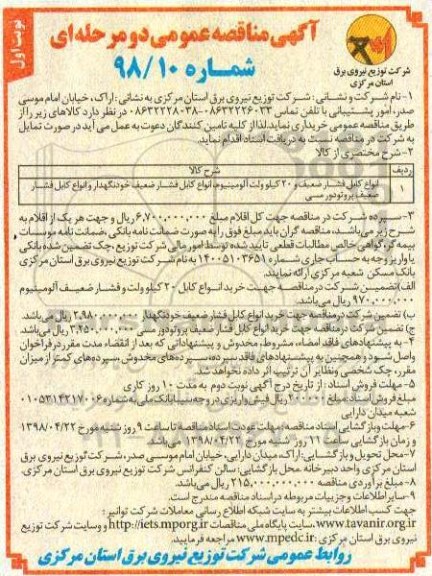 نوبت اول
آگهی مناقصه عمومی دو مرحله ای
شماره ۹۸/۱۰
شرکت توزیع نیروی برق
استان مرکزی
۱-نام شرکت و نشانی: شرکت توزیع نیروی برق استان مرکزی به نشانی: اراک، خیابان امام موسی
صدر، امور پشتیبانی با تلفن تماس ۰۸۶۳۲۲۲۶۰۳۳-۰۸۶۳۲۲۲۸۰۳۸ در نظر دارد کالاهای زیر را از
طریق مناقصه عمومی خریداری نماید. لذا از کلیه تامین کنندگان دعوت به عمل می آید در صورت تمایل
به شرکت در مناقصه نسبت به دریافت اسناد اقدام نماید.
۲-شرح مختصری از کالا
ردیف شرح کالا
۱ انواع کابل فشار ضعیف و ۲۰ کیلو ولت آلومینیوم، انواع کابل فشار ضعیف خودنگهدار و انواع کابل فشار
ضعیف پروتودور مسی
۳-سپرده شرکت در مناقصه جهت کل اقلام مبلغ ۶,۷۰۰,۰۰۰,۰۰۰ ریال و جهت هر یک از اقلام به
شرح زیر می باشد، مناقصه گران باید مبلغ فوق را به صورت ضمانت نامه بانکی، ضمانت نامه موسسات
بیمه گر، گواهی خالص مطالبات قطعی تایید شده توسط امور مالی شرکت توزیع، چک تضمین شده بانکی
یا واریز وجه به حساب جاری شماره ۱۴۰۰۵۱۰۳۶۵۱ به نام شرکت توزیع نیروی برق استان مرکزی
بانک مسکن شعبه مرکزی ارائه نمایند.
الف) تضمین شرکت در مناقصه جهت خرید انواع کابل ۲۰ کیلو ولت و فشار ضعیف آلومینیوم
۹۷۰,۰۰۰,۰۰۰ ریال می باشد.
ب) تضمین شرکت در مناقصه جهت خرید انواع کابل فشار ضعیف خودنگهدار ۲,۹۸۰,۰۰۰,۰۰۰ ریال می باشد.
ج) تضمین شرکت در مناقصه جهت خرید انواع کابل فشار ضعیف پروتودور مسی ۳,۲۵۰,۰۰۰,۰۰۰ ریال می باشد.
۴-به پیشنهادهای فاقد امضاء، مشروط، مخدوش و پیشنهاداتی که بعد از انقضاء مدت مقرر در فراخوان
واصل شود و همچنین به پیشنهادهای فاقد سپرده، سپرده های مخدوش، سپرده های کمتر از میزان
مقرر، چک شخصی و نظایر آن ترتیب اثر داده نخواهد شد.
۵-مهلت فروش اسناد: از تاریخ درج آگهی نوبت دوم به مدت ۱۰ روز کاری
شعبه میدان دارایی
۶-مهلت و بازگشایی اسناد مناقصه: مهلت عودت اسناد مناقصه تا ساعت ۹ روز شنبه مورخ ۱۳۹۸/۰۴/۲۲
و زمان بازگشایی ساعت ۱۱ روز شنبه مورخ ۱۳۹۸/۰۴/۲۲ می باشد.
۷-محل تحویل و بازگشایی: اراک، میدان دارایی، خیابان امام موسی صدر، شرکت توزیع نیروی برق
استان مرکزی واحد دبیرخانه محل بازگشایی: سالن کنفرانس شرکت توزیع نیروی برق استان مرکزی.
۸-مبلغ برآوردی مناقصه ۲۱۵,۰۰۰,۰۰۰,۰۰۰ ریال می باشد.
۹-سایر اطلاعات و جزییات مربوطه در اسناد مناقصه مندرج است.
جهت کسب اطلاعات بیشتر به سایت شبکه اطلاع رسانی معاملات شرکت توانیر:
www.tavanir.org.ir، سایت پایگاه ملی مناقصات http://iets.mporg.ir و وسایت شرکت توزیع
نیروی برق استان مرکزی: www.mpedc.ir مراجعه فرمایید.
روابط عمومی شرکت توزیع نیروی برق استان مرکزی